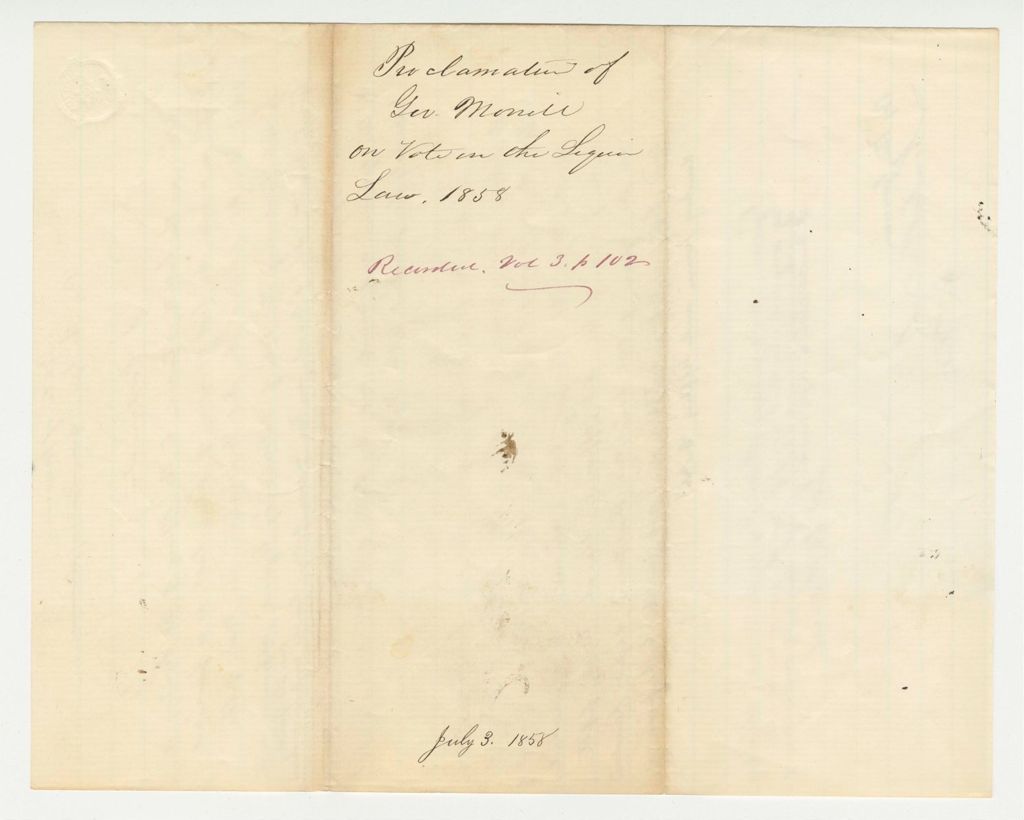 Proclamation of
Gov. Morrill
on Vote on the Liquor
Law, 1858
Recorded. Vol 3. p 102
July 3. 1858